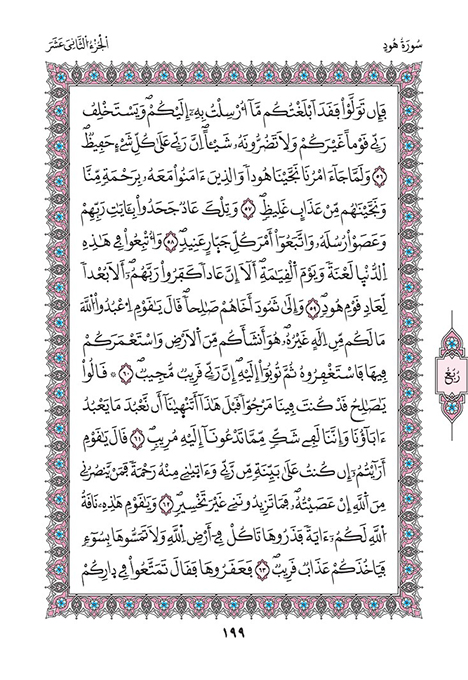 سُورَةُ هُودٍ
الجُزْءُ الثَّانِيَ عَشَرَ
فَإِن تَوَلَّوْاْ فَقَدَ اَبْلَغْتُكُم مَّا أُرْسِلْتُ بِهِۦٓ إِلَيْكُمْ وَيَسْتَخْلِفُ
رَبِّے قَوْماً غَيْرَكُمْ وَلَا تَضُرُّونَهُۥ شَيْـٔاً إِنَّ رَبِّے عَلَىٰ كُلِّ شَےْءٍ حَفِيظٌ
٥٦ وَلَمَّا جَآءَ امْرُنَا نَجَّيْنَا هُوداً وَالذِينَ ءَامَنُواْ مَعَهُۥ بِرَحْمَةٍ مِّنَّا
وَنَجَّيْنَٰهُم مِّنْ عَذَابٍ غَلِيظٍ ٥٧ وَتِلْكَ عَادٌ جَحَدُواْ بِـَٔايَٰتِ رَبِّهِمْ
وَعَصَوْاْ رُسُلَهُۥ وَاتَّبَعُوٓاْ أَمْرَ كُلِّ جَبّارٍ عَنِيدٍ ٥٨ وَأُتْبِعُواْ فِے هَٰذِهِ
اِ۬لدُّنْيا لَعْنَةً وَيَوْمَ اَ۬لْقِيَٰمَةِ أَلَآ إِنَّ عَاداً كَفَرُواْ رَبَّهُمْ أَلَا بُعْداً
لِّعَادٍ قَوْمِ هُودٍ ٥٩ وَإِلَىٰ ثَمُودَ أَخَاهُمْ صَٰلِحاً قَالَ يَٰقَوْمِ اِ۟عْبُدُواْ اُ۬للَّهَ
مَا لَكُم مِّنِ اِلَٰهٍ غَيْرُهُۥ هُوَ أَنشَأَكُم مِّنَ اَ۬لْأَرْضِ وَاسْتَعْمَرَكُمْ
فِيهَا فَاسْتَغْفِرُوهُ ثُمَّ تُوبُوٓاْ إِلَيْهِ إِنَّ رَبِّے قَرِيبٌ مُّجِيبٌ ٦٠ ۞ قَالُواْ
يَٰصَٰلِحُ قَدْ كُنتَ فِينَا مَرْجُوّاً قَبْلَ هَٰذَآ أَتَنْهَيٰنَآ أَن نَّعْبُدَ مَا يَعْبُدُ
ءَابَآؤُنَا وَإِنَّنَا لَفِے شَكٍّ مِّمَّا تَدْعُونَآ إِلَيْهِ مُرِيبٍ ٦١ قَالَ يَٰقَوْمِ
أَرَٰٓيْتُمُۥٓ إِن كُنتُ عَلَىٰ بَيِّنَةٍ مِّن رَّبِّے وَءَاتَيٰنِے مِنْهُ رَحْمَةً فَمَنْ يَّنصُرُنِے
مِنَ اَ۬للَّهِ إِنْ عَصَيْتُهُۥ فَمَا تَزِيدُونَنِے غَيْرَ تَخْسِيرٍ ٦٢ وَيَٰقَوْمِ هَٰذِهِۦ نَاقَةُ
اُ۬للَّهِ لَكُمُۥٓ ءَايَةً فَذَرُوهَا تَاكُلْ فِےٓ أَرْضِ اِ۬للَّهِ وَلَا تَمَسُّوهَا بِسُوٓءٍ
فَيَاخُذَكُمْ عَذَابٌ قَرِيبٌ ٦٣ فَعَقَرُوهَا فَقَالَ تَمَتَّعُواْ فِے دِارِكُمْ
رُبُعْ
١٩٩